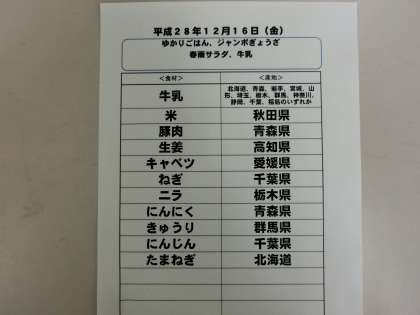 平成28年12月16日（金）
ゆかりごはん、ジャンボぎょうざ
春雨サラダ、牛乳
＜食材＞ ＜産地＞
牛乳 北海道、青森、岩手、宮城、山
形、埼玉、栃木、群馬、神奈川、
静岡、千葉、福島のいずれか
米 秋田県
豚肉 青森県
生姜 高知県
キャベツ 愛媛県
ねぎ 千葉県
ニラ 栃木県
にんにく 青森県
きゅうり 群馬県
にんじん 千葉県
たまねぎ 北海道